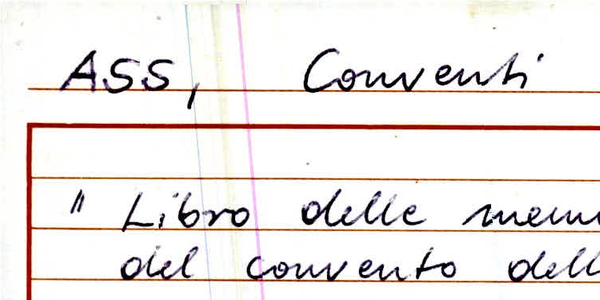 ASS, Conventi
" Libro delle mem
del convento dell